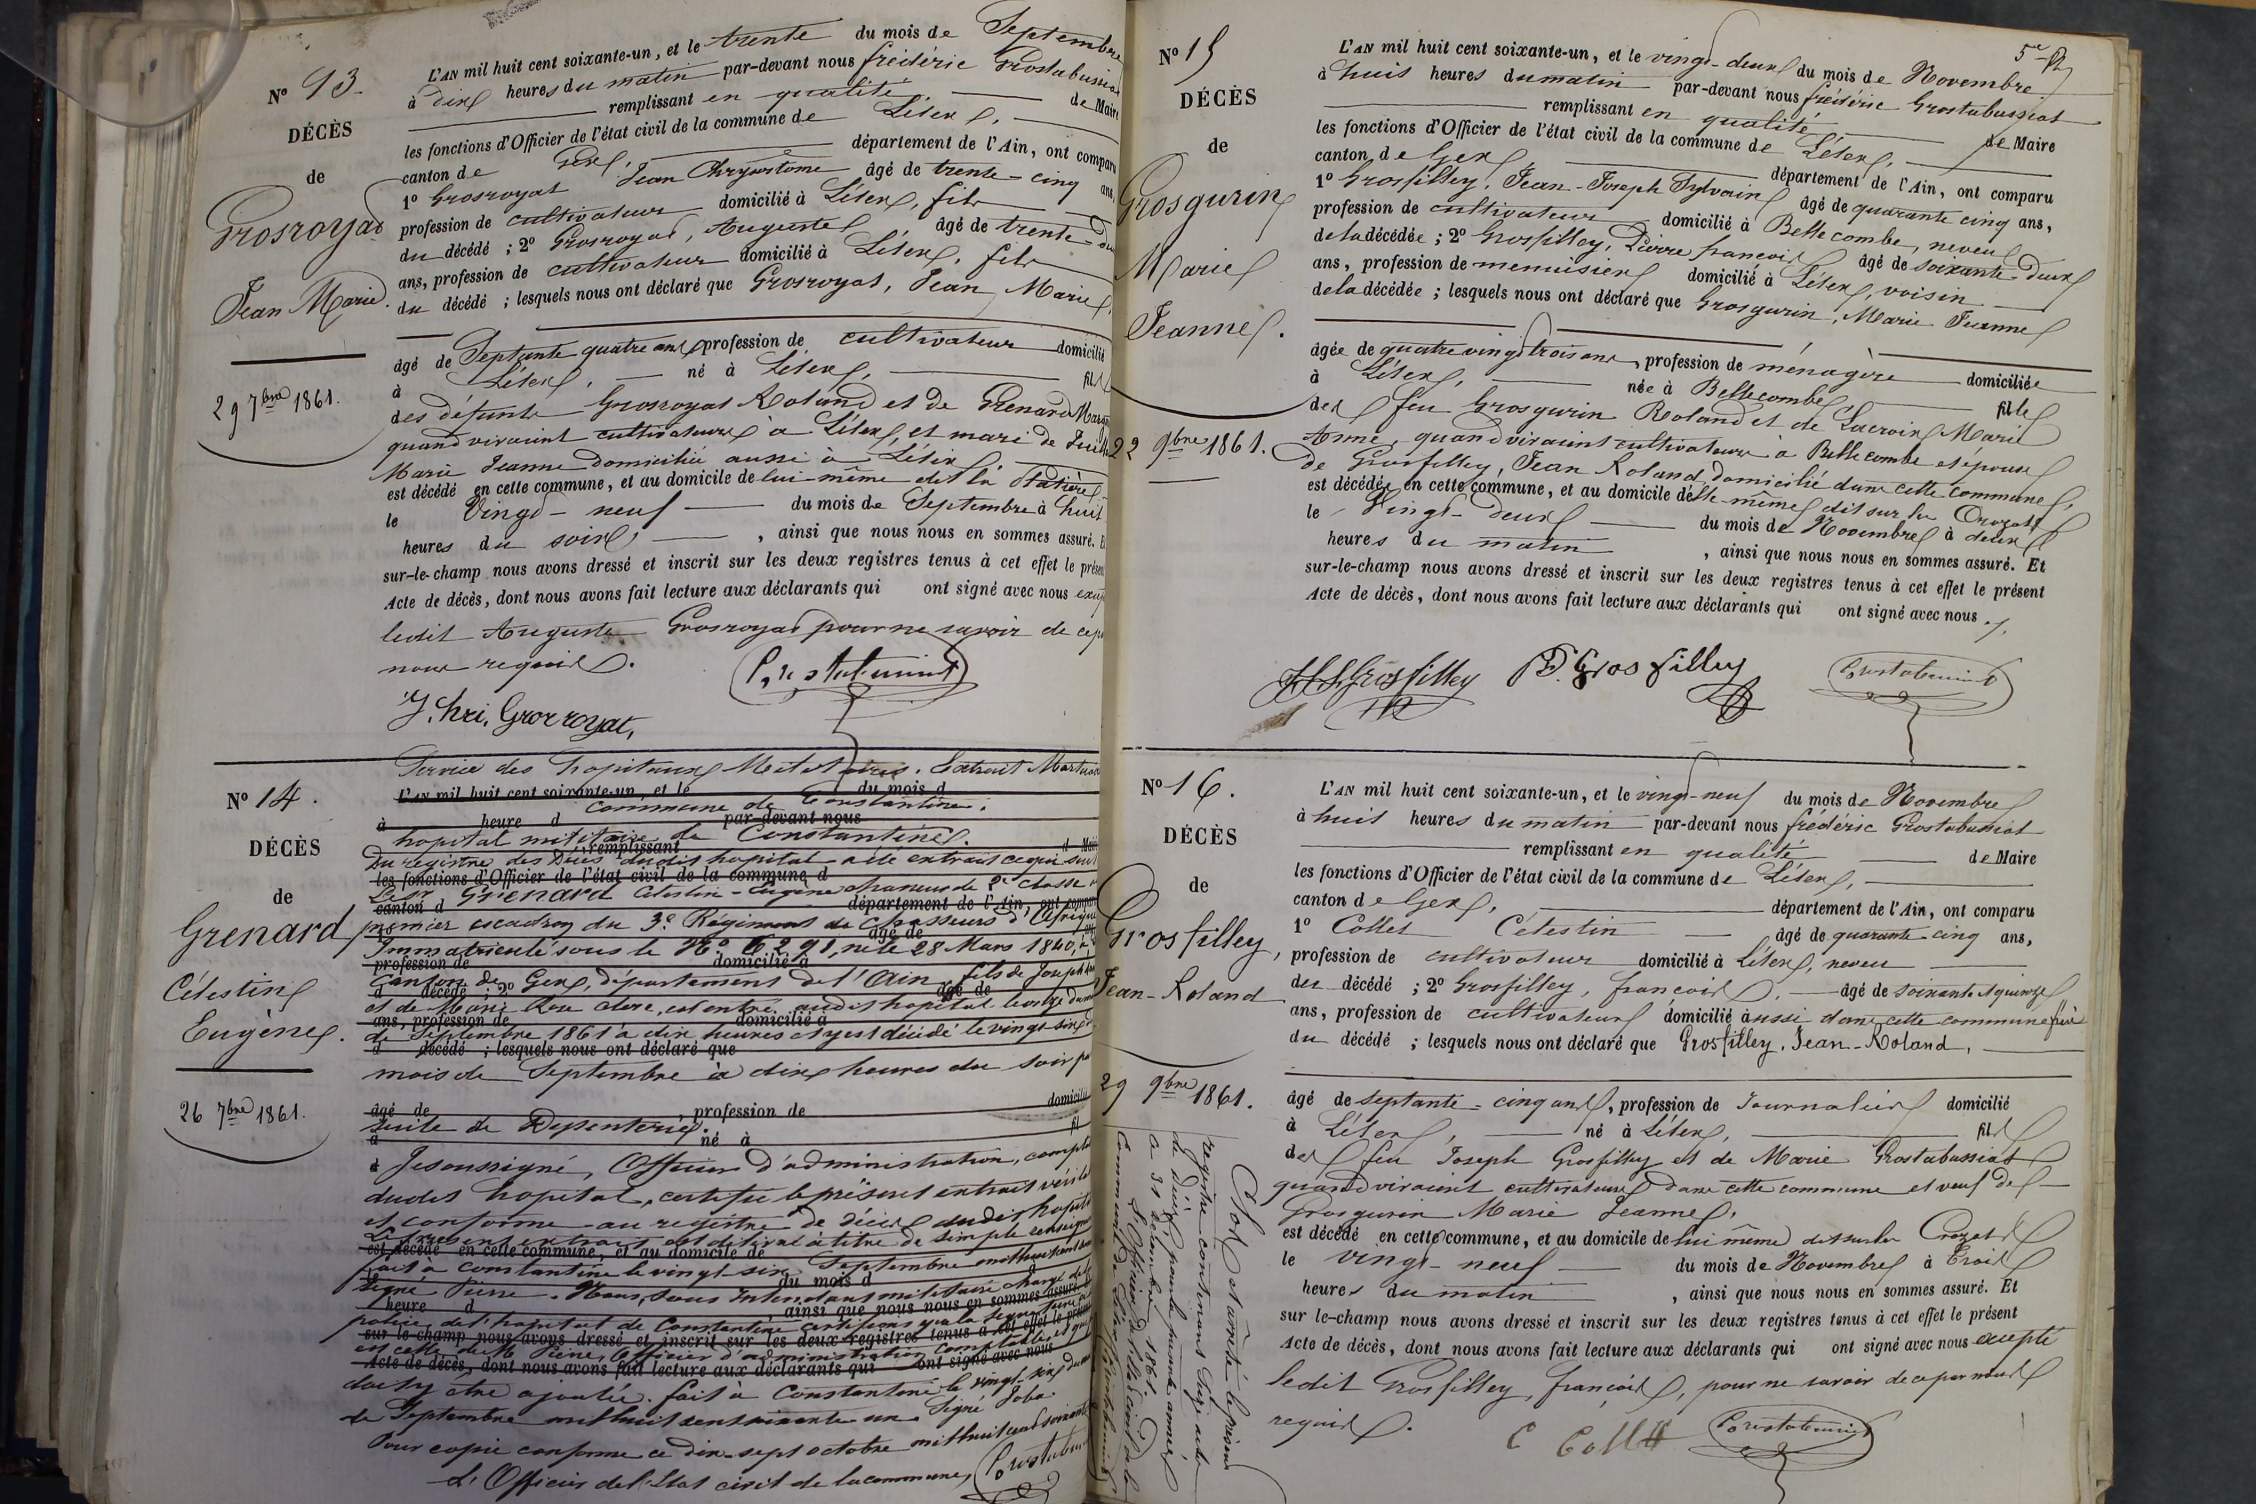 N° 13.
DÉCÈS
de
Grosroyat
Jean Marie.
29 7bre 1861.
L'AN mil huit cent soixante-un, et le trente du mois de Septembre
à dix heures du matin par-devant nous frédéric Grostabussiat
remplissant en qualité de Maire
les fonctions d'Officier de l'état civil de la commune de Lélex,
canton de Gex, département de l'Ain, ont comparu
1° Grosroyat Jean Chrysostome âgé de trente-cinq ans,
profession de cultivateur domicilié à Lélex, fils
du décédé ; 2° Grosroyat, Auguste âgé de trente-deux
ans, profession de cultivateur domicilié à Lélex, fils
du décédé ; lesquels nous ont déclaré que Grosroyat, Jean Marie,
âgé de Septante quatre ans profession de cultivateur domicilié
à Lélex, né à Lélex, fils
des défunts Grosroyat Roland et de Grenard
quand vivaient cultivateurs à Lélex, et mari de
Marie Jeanne domiciliée aussi à Lélex
est décédé en cette commune, et au domicile de lui-même dit la
le Vingt-neuf du mois de Septembre à huit
heures du soir, , ainsi que nous nous en sommes assuré. Et
sur-le-champ nous avons dressé et inscrit sur les deux registres tenus à cet effet le présent
Acte de décès, dont nous avons fait lecture aux déclarants qui ont signé avec nous
ledit Auguste Grosroyat pour ne savoir de ce par
nous requis.
J. Chri. Grosroyat,
N° 14.
DÉCÈS
de
Grenard
Célestin
Eugène.
26 7bre 1861.
Service des hopitaux Militaires. Extrait Mortuaire
L'AN mil huit cent soixante-un, et le du mois d
commune de Constantine.
à heure d par-devant nous
hopital militaire de Constantine.
remplissant d Maire
Du registre des Décès dudit hopital a été extrait ce qui suit
les fonctions d'Officier de l'état civil de la commune d
Le Sr Grenard Célestin-Eugène chasseur de 2e classe
canton d département de l'Ain, ont comparu
premier escadron du 3e Régiment de Chasseurs d'Afrique
âgé de
Immatriculé sous le N° 6291, né le 28 Mars 1840, à
profession de domicilié à
Canton de Gex, département de l'Ain, fils de Joseph
d décédé ; 2° âgé de
et de Marie est entré audit hopital le onze du mois
ans, profession de domicilié à
de Septembre 1861 à dix heures et y est décédé le vingt-six du
d décédé ; lesquels nous ont déclaré que
mois de Septembre à dix heures du soir par
âgé de , profession de domicilié
suite de Dysenterie.
à né à fil
Je soussigné, Officier d'administration, comptable
dudit hopital, certifie le présent extrait véritable
et conforme au registre de décès dudit hopital
Le présent extrait est délivré à titre de simple renseignement
est décédé en cette commune, et au domicile de
fait à Constantine le vingt-six Septembre mil huit cent
le du mois d
Signé Pierre. Nous, Sous Intendant militaire chargé de la
heure d , ainsi que nous nous en sommes assuré. Et
police de l'hopital de Constantine certifions que la signature
sur-le-champ nous avons dressé et inscrit sur les deux registres tenus à cet effet le présent
est celle de Mr Pierre, Officier d'administration comptable, et que foi
Acte de décès, dont nous avons fait lecture aux déclarants qui ont signé avec nous
doit y être ajoutée. fait à Constantine le vingt-six du mois
de Septembre mil huit cent soixante un Signé
Pour copie conforme ce dix-sept octobre mil huit cent soixante
L'Officier de l'Etat civil de la commune,
5e
N° 15
DÉCÈS
de
Grosgurin
Marie
Jeanne.
22 9bre 1861.
L'AN mil huit cent soixante-un, et le vingt-deux du mois de Novembre
à huit heures du matin par-devant nous frédéric Grostabussiat
remplissant en qualité de Maire
les fonctions d'Officier de l'état civil de la commune de Lélex,
canton de Gex, département de l'Ain, ont comparu
1° Grosfilley, Jean-Joseph Sylvain âgé de quarante cinq ans,
profession de cultivateur domicilié à Bellecombe, neveu
de la décédée ; 2° Grosfilley, Pierre françois âgé de soixante-deux
ans, profession de menuisier domicilié à Lélex, voisin
de la décédée ; lesquels nous ont déclaré que Grosgurin, Marie Jeanne
âgée de quatre vingt trois ans, profession de ménagère domiciliée
à Lélex, née à Bellecombe, fille
des feu Grosgurin Roland et de Lacroix Marie
Anne, quand vivaient cultivateurs à Bellecombe et épouse
de Grosfilley, Jean Roland, domicilié dans cette commune,
est décédée en cette commune, et au domicile d'elle-même dit sur le Crozat
le Vingt-deux du mois de Novembre à deux
heures du matin , ainsi que nous nous en sommes assuré. Et
sur-le-champ nous avons dressé et inscrit sur les deux registres tenus à cet effet le présent
Acte de décès, dont nous avons fait lecture aux déclarants qui ont signé avec nous.
J J S Grosfilley P.F. Gros filley
N° 16.
DÉCÈS
de
Grosfilley,
Jean-Roland
29 9bre 1861.
L'AN mil huit cent soixante-un, et le vingt-neuf du mois de Novembre
à huit heures du matin par-devant nous frédéric Grostabussiat
remplissant en qualité de Maire
les fonctions d'Officier de l'état civil de la commune de Lélex,
canton de Gex, département de l'Ain, ont comparu
1° Collet Célestin âgé de quarante-cinq ans,
profession de cultivateur domicilié à Lélex, neveu
du décédé ; 2° Grosfilley, françois, âgé de soixante et quinze
ans, profession de cultivateur domicilié aussi dans cette commune frère
du décédé ; lesquels nous ont déclaré que Grosfilley, Jean-Roland,
âgé de septante-cinq ans, profession de Journalier domicilié
à Lélex, né à Lélex, fils
des feu Joseph Grosfilley et de Marie Grostabussiat
quand vivaient cultivateurs dans cette commune et veuf de
Grosgurin Marie Jeanne,
est décédé en cette commune, et au domicile de lui même dit sur le Crozat
le vingt-neuf du mois de Novembre à trois
heures du matin , ainsi que nous nous en sommes assuré. Et
sur le-champ nous avons dressé et inscrit sur les deux registres tenus à cet effet le présent
Acte de décès, dont nous avons fait lecture aux déclarants qui ont signé avec nous excepté
ledit Grosfilley, françois, pour ne savoir de ce par nous
requis.
C Collet
Clos et arrêté le présent
registre contenant Seize actes
de décès, pour la présente année
a 31 décembre 1861.
L'Officier de l'Etat civil de la
commune de Lélex